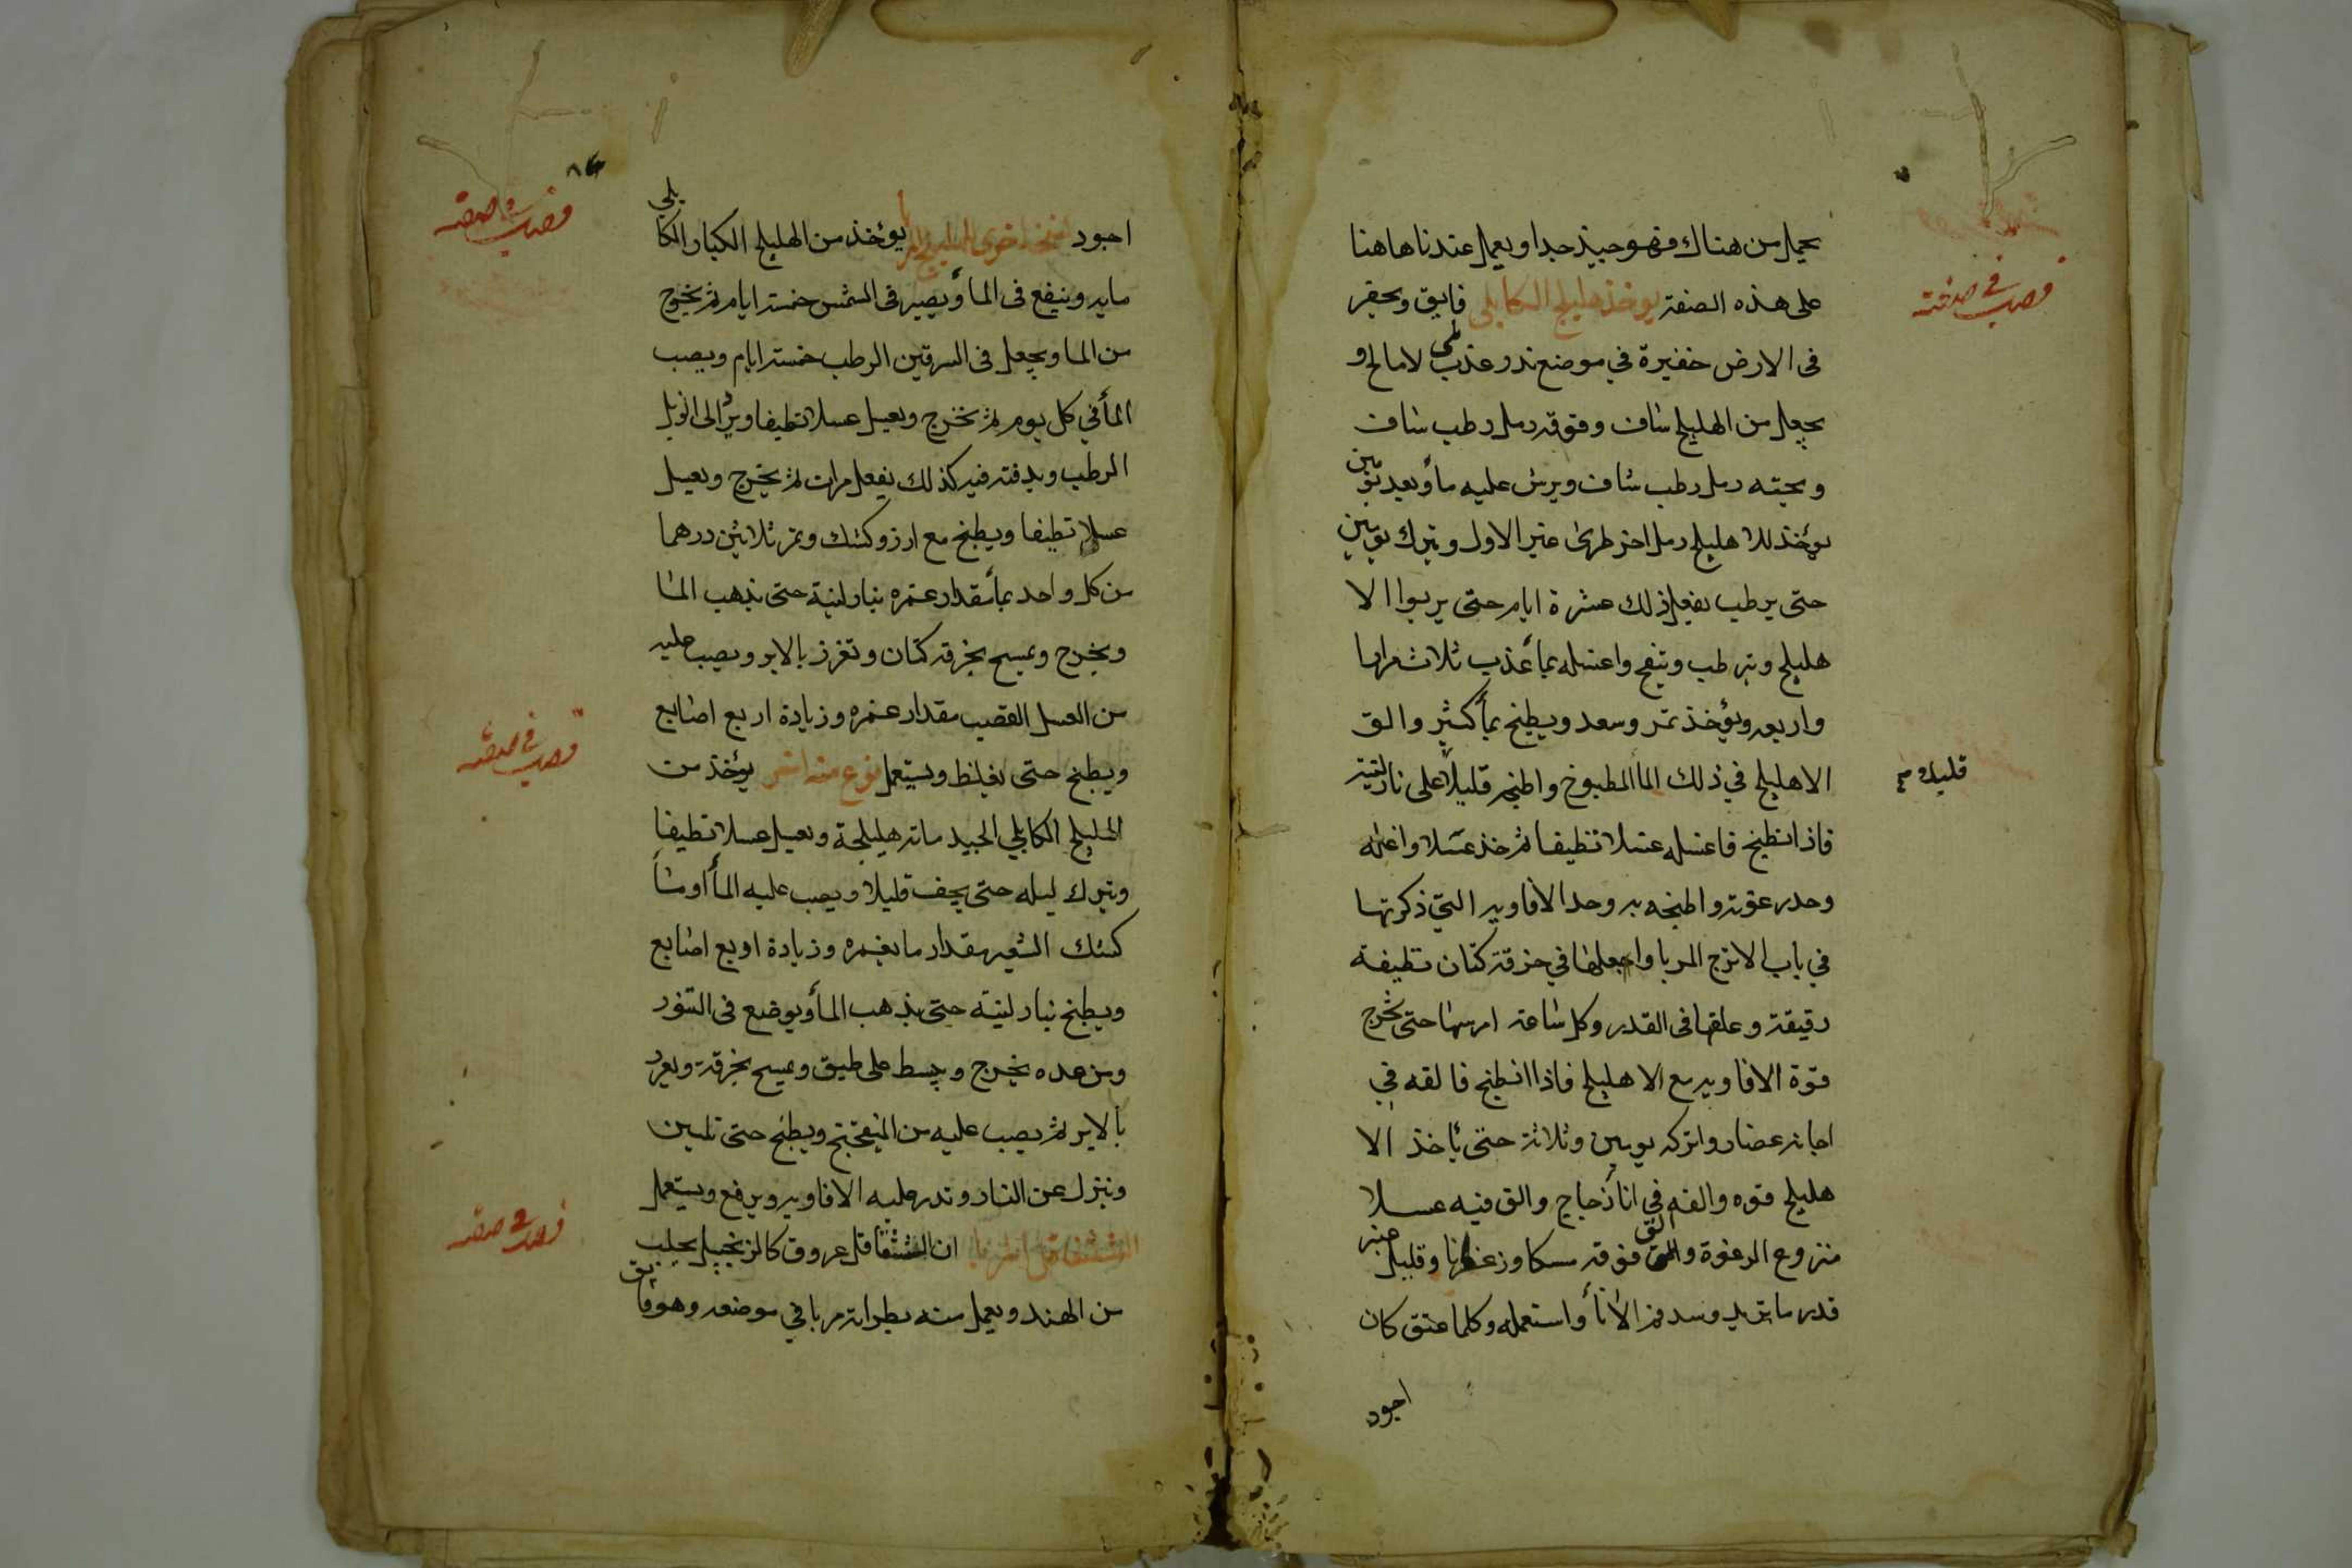 يحمل من هناك فهو جيد جدا ويعمل عندنا هاهنا
على هذه الصفة يوخذ هليلج الكابلي فايق ويحفر
فى الارض حفيرة في موضع ندر عذب لا مالح و
يجعل من الهليلج ساف وفوقه رمل رطب ساف
وتحته رمل رطب ساف ويرش عليه مأ وبعد يومين
يؤخذ للاهليلج رمل اخر طرى غير الاول ويترك يومين
حتى يرطب يفعل ذلك عشرة ايام حتى يربوا الا
هليلج ويترطب وينفح واغسله بمأ عذب ثلاث مرار
واربعه ويؤخذ تمر وسعد ويطبخ بمأ كثير والق
الاهليلج في ذلك المأ المطبوخ واطبخه قليلاً على نار لينة
قليلا
فاذا نطبخ فاغسله غسلا نظيفا ثم خذ عسلا واغله
وخدر غوته واطبخه به وخذ الافاويه التي ذكرتها
في باب الاترج المربا واجعلها في خرقة كتان نظيفة
رقيقة وعلقها فى القدر وكل ساعة امرسها حتى تخرج
قوة الافاويه مع الاهليلج فاذا انطبخ فالقه في
اجانه غضار واتركه يومين وثلاثة حتى ياخذ الا
هليلج قوه والقه في انأ زجاج والق فيه عسلا
منزوع الرغوة والق فوقه مسكا وزعفرانا وقليل عنبر
قدر ما تريد وسد فم الانأ واستعمله وكلما عتق كان
اجود
فصل في صفته
٨٤
فصل في صفته
اجود نسخة اخرى الهليلج المربا يؤخذ من الهليلج الكبار الكابلي
مايه وينقع فى المأ ويصير فى الشمس خمسة ايام ثم يخرج
من الما ويجعل فى السرقين الرطب خمسة ايام ويصب
المأ في كل يوم ثم يخرج ويغسل غسلا نظيفا ويرد الى الزبل
الرطب ويدفنه فيه كذلك يفعل مرات ثم يخرج ويغسل
غسلا نظيفا ويطبخ مع ارز وكشك وتمر ثلاثين درهما
من كل واحد بمأ مقدار غمره بنار لينة حتى يذهب الما
ويخرج ويمسح بخرقة كتان وتغرز بالابر ويصب عليه
من العسل القصب مقدار غمره وزيادة اربع اصابع
ويطبخ حتى يغلظ ويستعمل نوع منه اخر يؤخذ من
فصل في صفته
الهليلج الكابلي الجيد ماته هليلجة ويغسل غسلا نظيفا
ويترك ليله حتى يجف قليلا ويصب عليه المأ او مأ
كشك الشعير مقدار ما يغمره وزيادة اربع اصابع
ويطبخ بنار لينة حتى يذهب المأ ويوضع فى التنور
ومن غده يخرج ويبسط على طبق ويمسح بخرقة ويغرز
بالابر ثم يصب عليه من الميفختج ويطبخ حتى تلين
وينزل عن النار وتدر عليه الافاويه ويرفع ويستعمل
الششقاقل المربا ان الششقاقل عروق كالزنجبيل يجلب
فصل في صفته
من الهند ويعمل منه بطراته مربا في موضعه وهو فايق